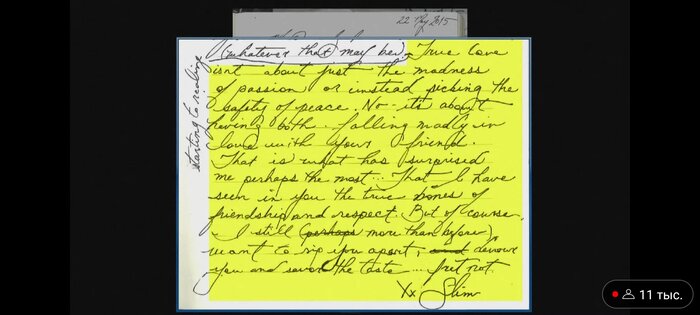 22 May 2015
starting to realize
(whatever that) may be. True love
isnt about just the madness
of passion or instead picking the
safety of peace. No - its about
having both. falling madly in
love with your friend.
That is what has surprised
me perhaps the most... That I have
seen in you the true bones of
friendship and respect. But of course,
I still (perhaps more than before)
want to rip you apart, and devour
you and savor the taste... fret not.
Xx Slim
11 тыс.